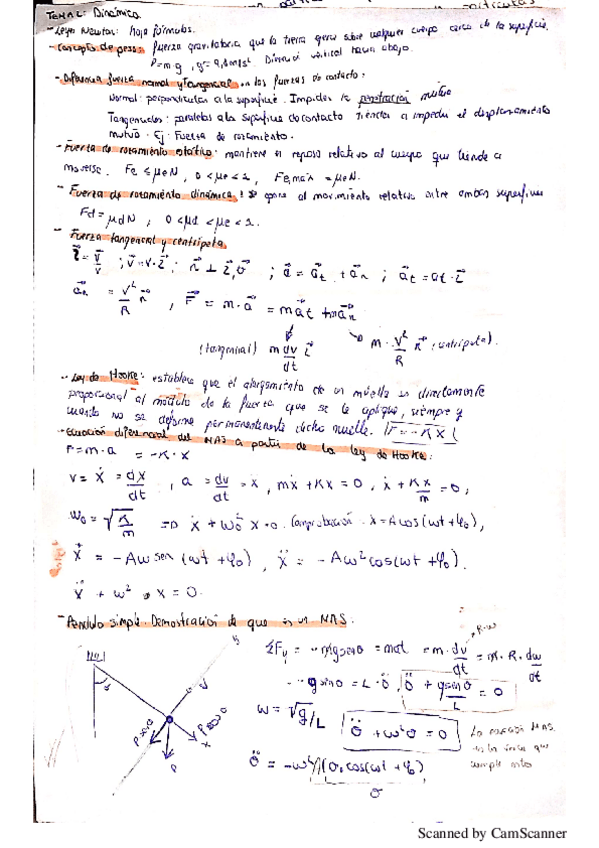 Tema 2: Dinámica
- Leyes Newton: Hoja fórmulas.
- Concepto de peso: fuerza gravitatoria que la tierra ejerce sobre cualquier cuerpo cerca de la superficie.
P = m g, g = 9,8 m/s². Dirección vertical hacia abajo.
- Diferencia fuerza normal y tangencial en las fuerzas de contacto:
Normal: perpendicular a la superficie. Impides la penetración mutua
Tangenciales: paralelas a la superficie de contacto tienden a impedir el desplazamiento
mutuo. Ej: Fuerza de rozamiento.
- Fuerza de rozamiento estático: mantiene el reposo relativo al cuerpo que tiende a
moverse. Fe ≤ μeN, 0 < μe < 1, Fe,max = μeN.
- Fuerza de rozamiento dinámica: se opone al movimiento relativo entre ambas superficies
Fd = μdN, 0 < μd < μe < 1.
- Fuerza tangencial y centrípeta
a⃗ = a⃗t + a⃗n ; a⃗t = at · τ⃗
a⃗n = v²/R n⃗, F⃗ = m · a⃗ = m a⃗t + m a⃗n
(tangencial) m dv/dt τ⃗ m · v²/R n⃗ (centrípeta).
- Ley de Hooke: establece que el alargamiento de un muelle es directamente
proporcional al módulo de la fuerza que se le aplique, siempre y
cuando no se deforme permanentemente dicho muelle. F = -Kx
- Ecuación diferencial del MAS a partir de la ley de Hooke:
F = m · a = -K · x
v = ẋ = dx/dt, a = dv/dt = ẍ, mẍ + Kx = 0, ẍ + Kx/m = 0,
w₀ = √K/m => ẍ + w₀² x = 0. Comprobación. x = A cos(wt + φ₀),
ẋ = -Aw sen(wt + φ₀), ẍ = -Aw² cos(wt + φ₀).
ẍ + w² · x = 0.
- Péndulo simple. Demostración de que es un MAS.
ΣFy = -mg senθ = mat = m · dv/dt = m · R · dw/dt
R·w
- g senθ = L · θ̈, θ̈ + g senθ/L = 0
w = √g/L θ̈ + w²θ = 0
La ecuación MAS
es la única que
cumple esto
θ̈ = -w² θ₀ cos(wt + φ₀)
θ
P
x
Scanned by CamScanner